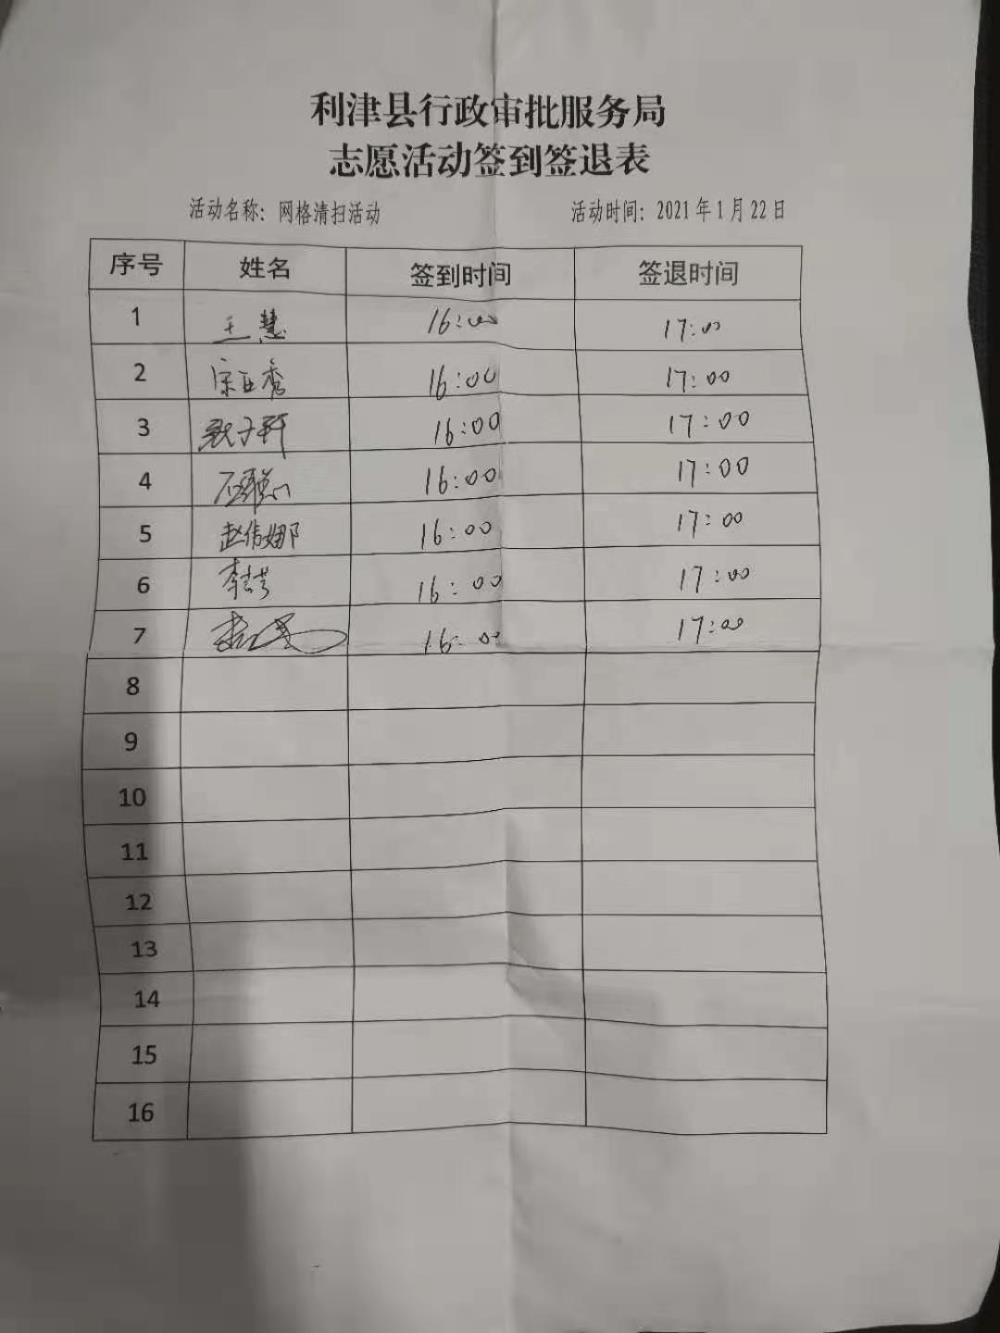 利津县行政审批服务局
志愿活动签到签退表
活动名称：网格清扫活动 活动时间：2021年1月22日
序号 姓名 签到时间 签退时间
1 王慧 16:00 17:00
2 宋亚秀 16:00 17:00
3 16:00 17:00
4 16:00 17:00
5 赵伟娜 16:00 17:00
6 16:00 17:00
7 16:00 17:00
8
9
10
11
12
13
14
15
16